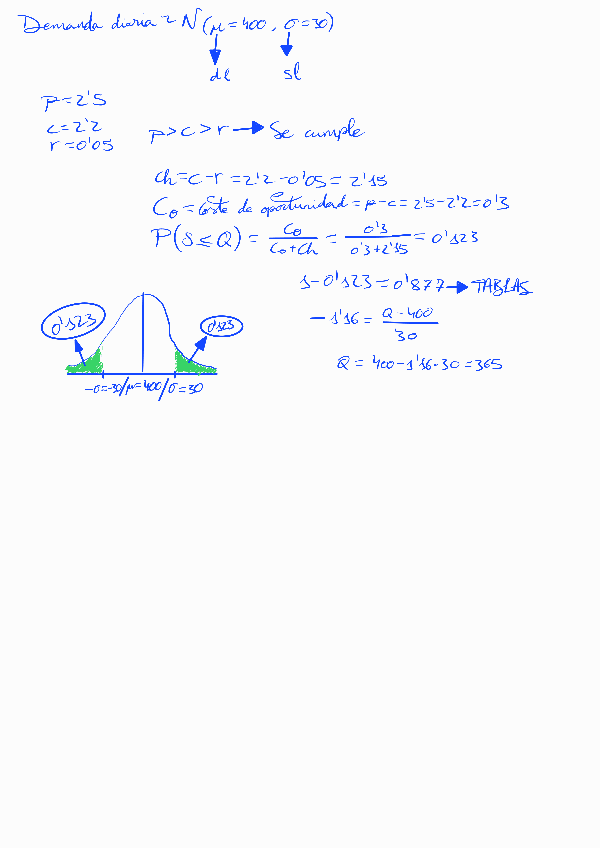 Demanda diaria ~ N (μ = 400, σ = 30)
dl sl
p = 2'5
c = 2'2
r = 0'05
p > c > r → Se cumple
Ch = c - r = 2'2 - 0'05 = 2'15
Co = Coste de oportunidad = p - c = 2'5 - 2'2 = 0'3
P(S ≤ Q) = Co / (Co + Ch) = 0'3 / (0'3 + 2'15) = 0'123
1 - 0'123 = 0'877 → TABLAS
- 1'16 = (Q - 400) / 30
Q = 400 - 1'16 · 30 = 365
0'123 0'123
-σ = -30 / μ = 400 / σ = 30